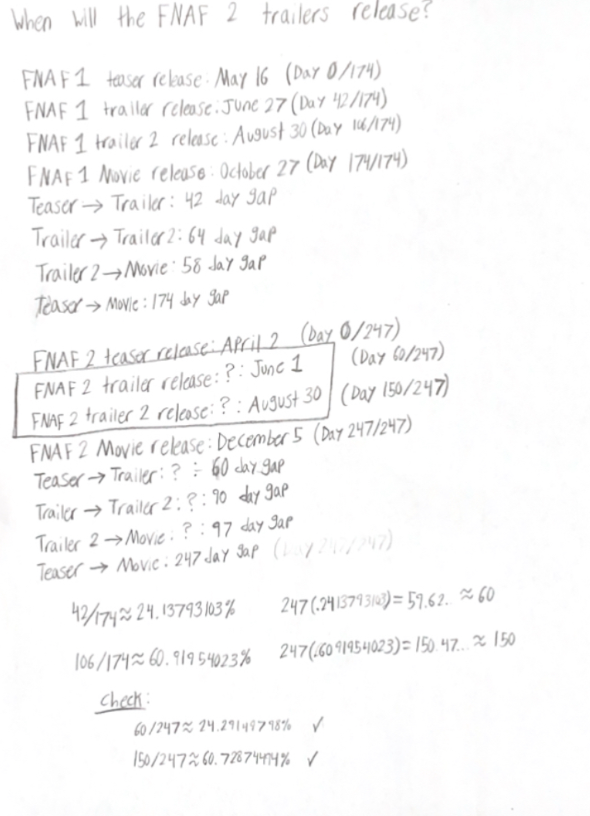 When will the FNAF 2 trailers release?
FNAF 1 teaser release: May 16 (Day 0/174)
FNAF 1 trailer release: June 27 (Day 42/174)
FNAF 1 trailer 2 release: August 30 (Day 106/174)
FNAF 1 Movie release: October 27 (Day 174/174)
Teaser → Trailer: 42 day gap
Trailer → Trailer 2: 64 day gap
Trailer 2 → Movie: 58 day gap
Teaser → Movie: 174 day gap
FNAF 2 teaser release: April 2 (Day 0/247)
FNAF 2 trailer release: ? : June 1 (Day 60/247)
FNAF 2 trailer 2 release: ? : August 30 (Day 150/247)
FNAF 2 Movie release: December 5 (Day 247/247)
Teaser → Trailer: ? : 60 day gap
Trailer → Trailer 2: ? : 90 day gap
Trailer 2 → Movie: ? : 97 day gap
Teaser → Movie: 247 day gap (Day 247/247)
42/174 ≈ 24.13793103% 247(.2413793103) = 59.62.. ≈ 60
106/174 ≈ 60.91954023% 247(.6091954023) = 150.47... ≈ 150
Check:
60/247 ≈ 24.29149798% ✓
150/247 ≈ 60.72874494% ✓